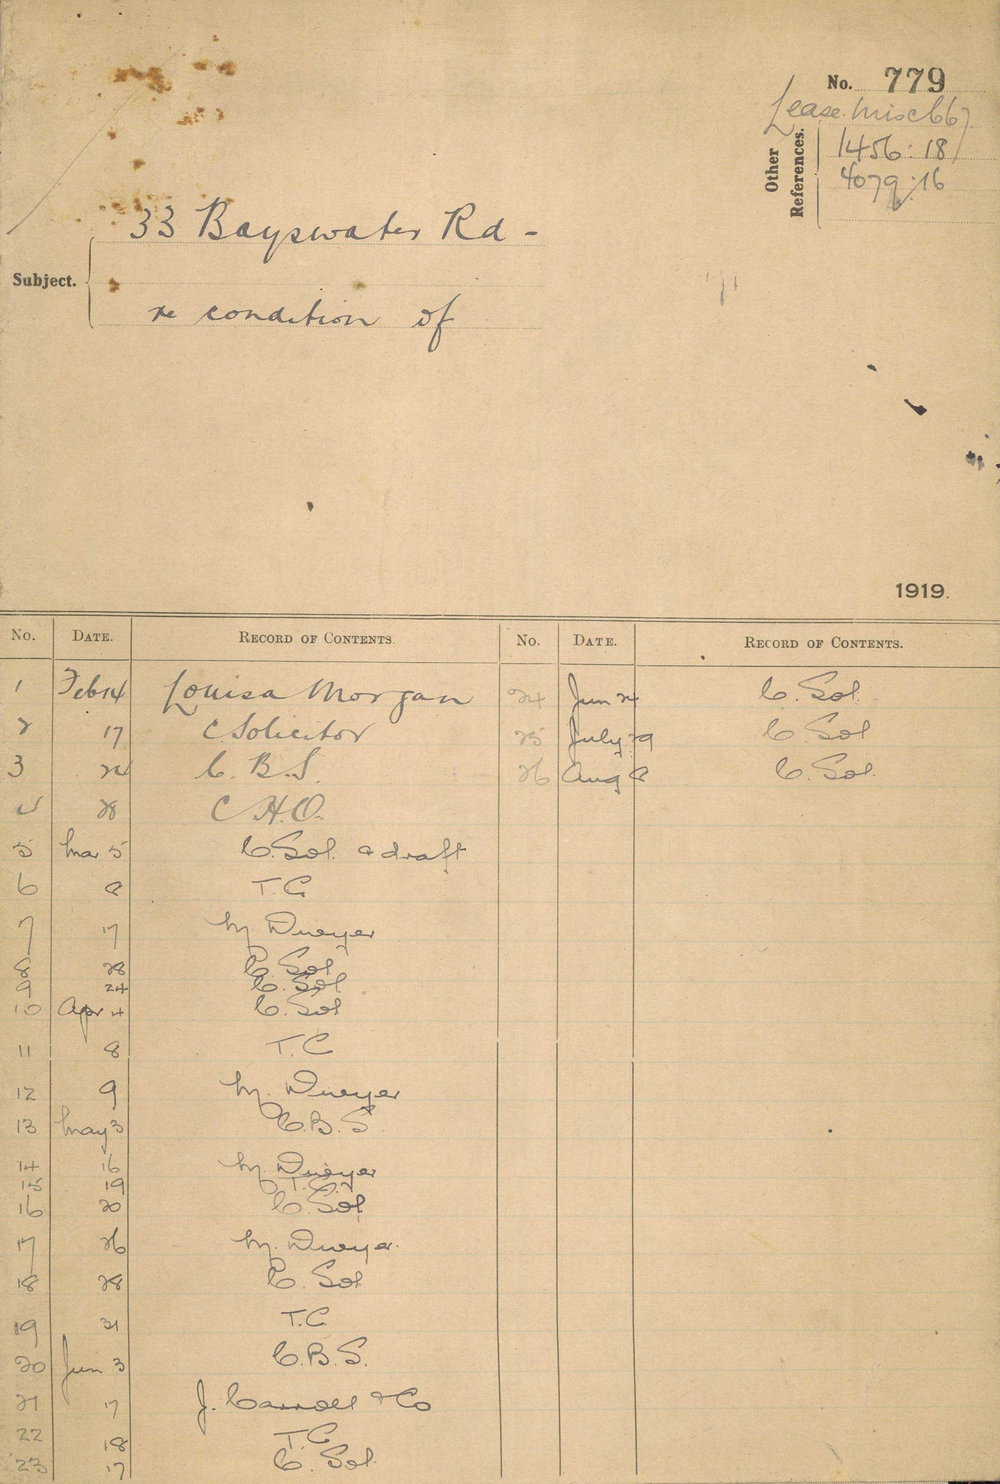 No. 779
Lease Misc 667
Other References.
1456:18
4079:16
33 Bayswater Rd -
Subject.
re condition of
1919.
No. DATE. RECORD OF CONTENTS. No. DATE. RECORD OF CONTENTS.
1 Feb 14 Louisa Morgan
2 17 C Solicitor
3 24 C. B. S.
4 28 C H.O.
5 Mar 5 C. Sol. & draft
6 T.C
7 17 M Dwyer
8 28 C. Sol
9 24 C. Sol.
10 Apr 4 C. Sol
11 8 T.C
12 9 M. Dwyer
13 May 3 C.B.S.
14 16 M. Dwyer
15 19 T.C.
16 20 C. Sol
17 26 M. Dwyer.
18 28 C. Sol
19 31 T.C
20 Jun 3 C.B.S.
21 17 J. Carroll & Co
22 18 T.C
23 17 C. Sol.
24 Jun 24 C. Sol.
25 July 29 C. Sol
26 Aug C. Sol.